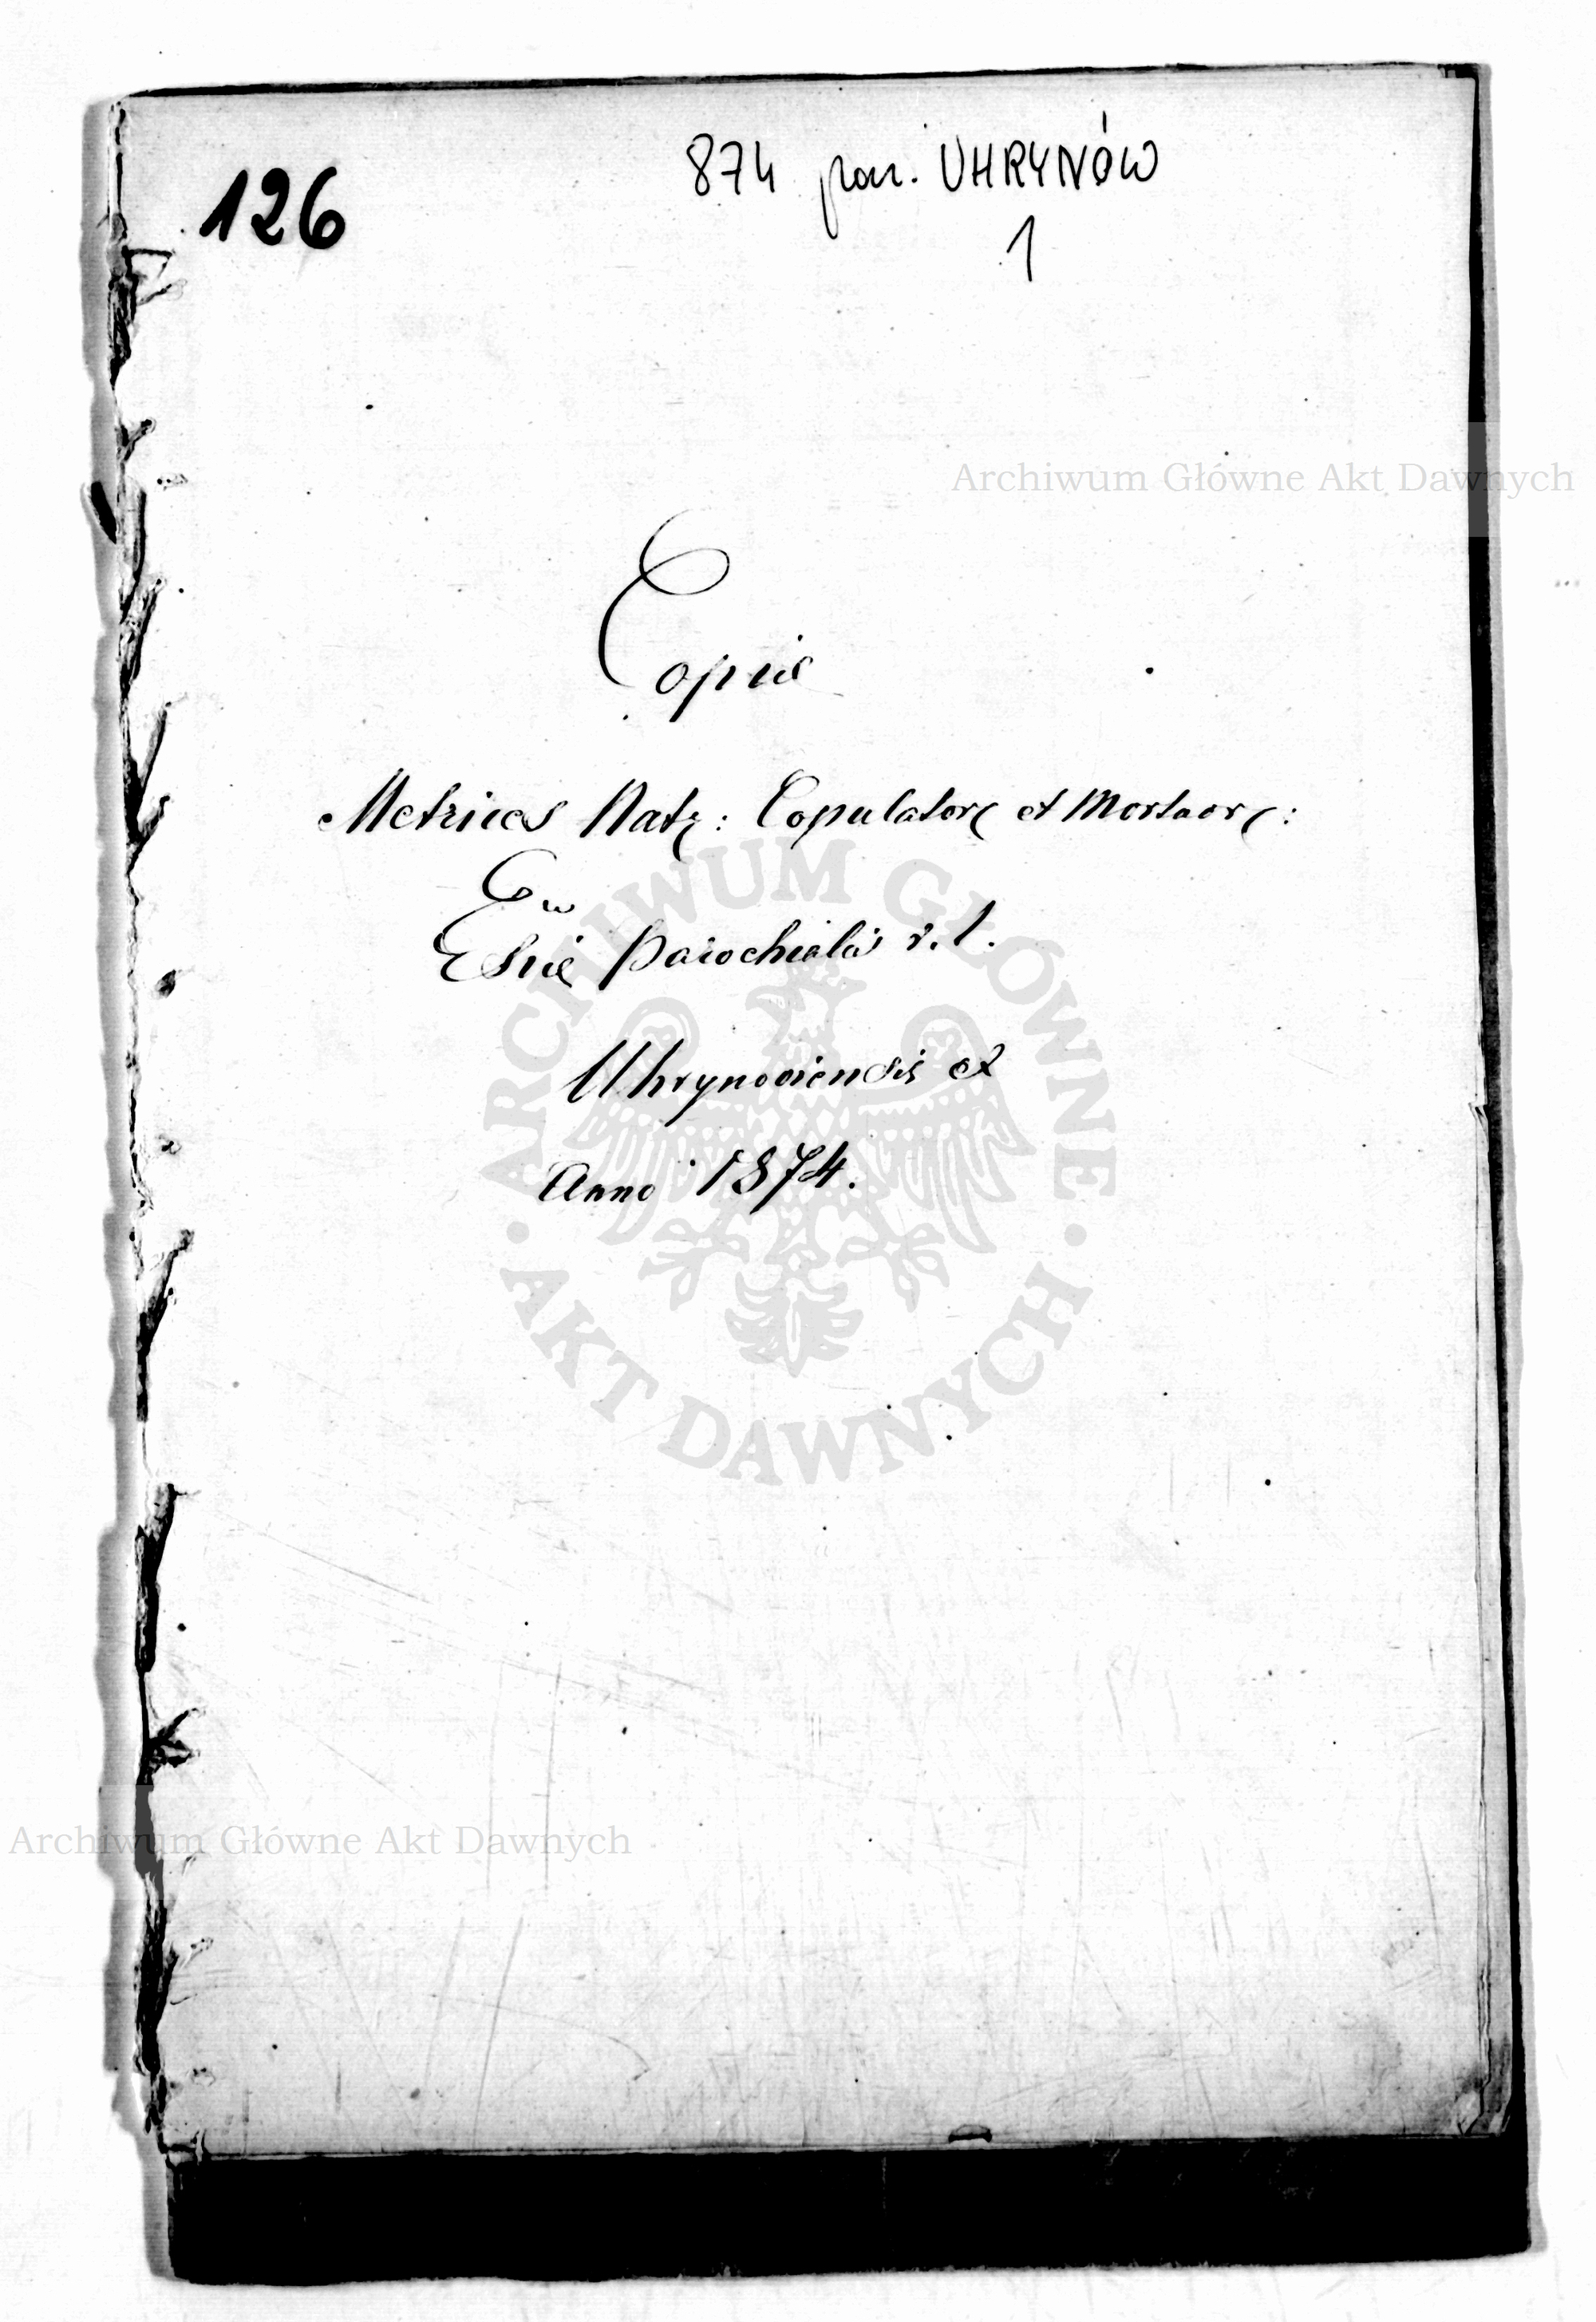 126
874 par. UHRYNÓW
1
Archiwum Główne Akt Dawnych
Copia
Metrices Natr: Copulator et Mortuor:
Parochialis r. l.
Uhrynoviensis et
Anno 1874.
ARCHIWUM GŁÓWNE
AKT DAWNYCH
Archiwum Główne Akt Dawnych